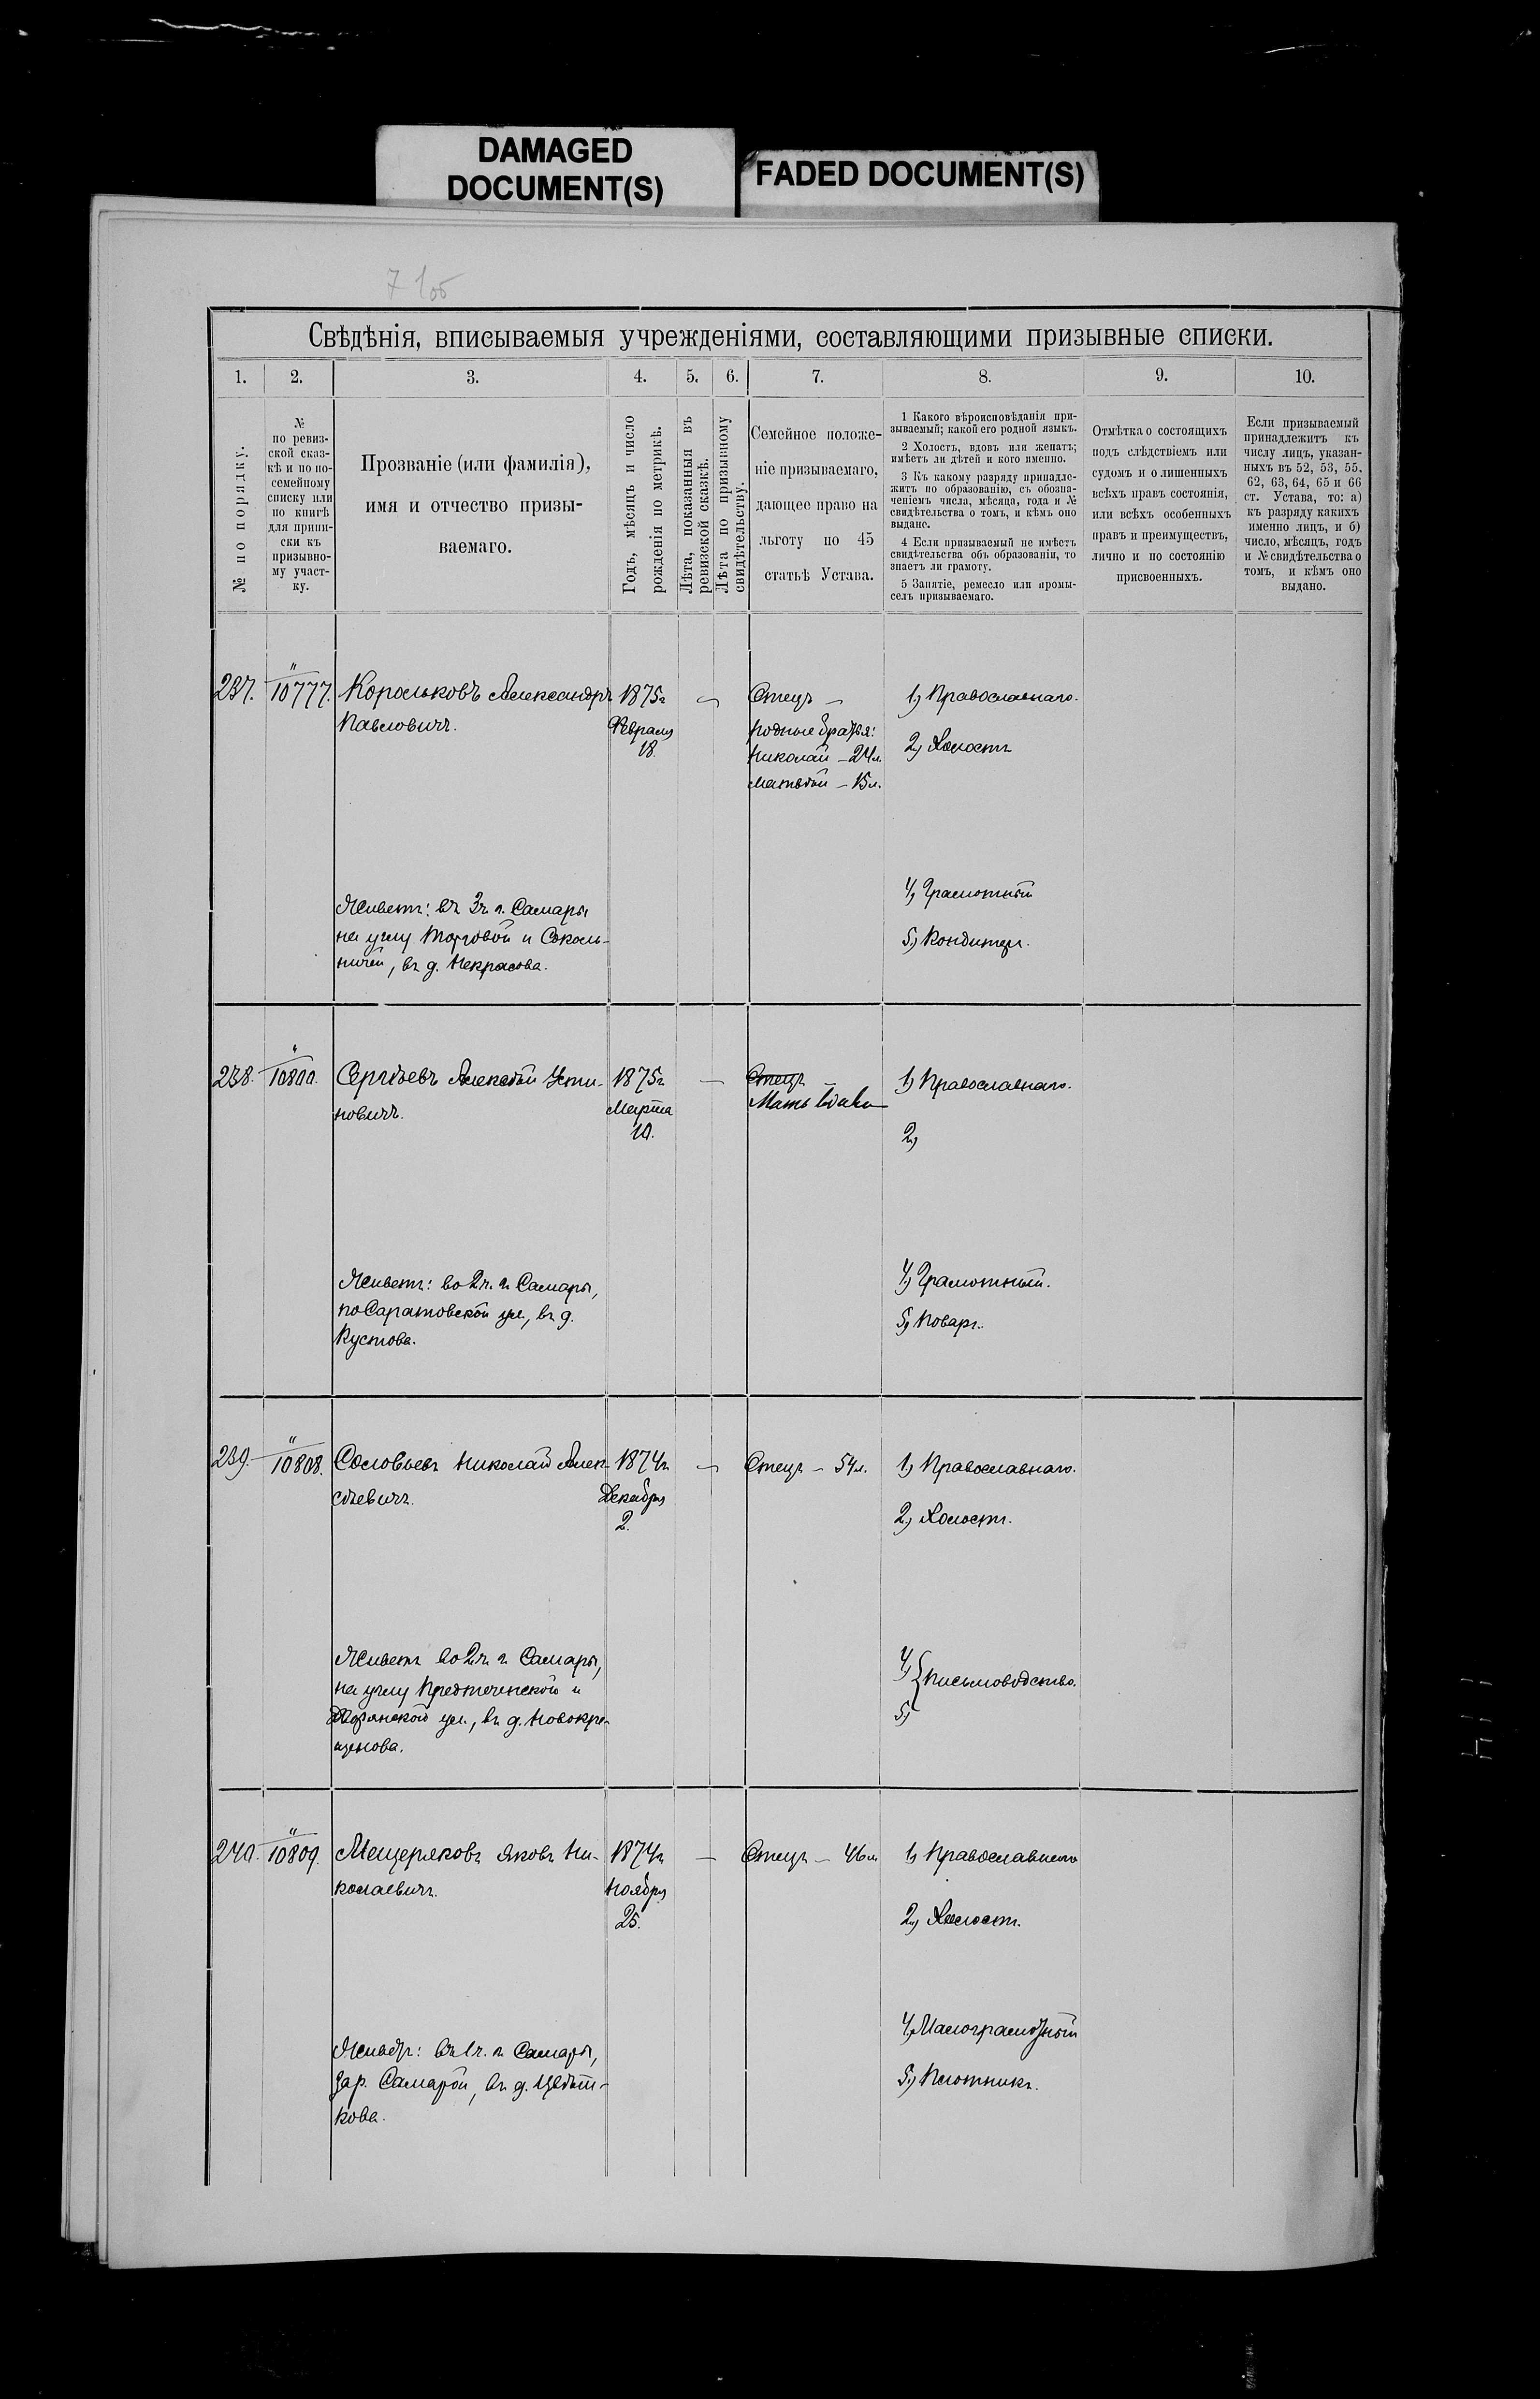 DAMAGED
DOCUMENT(S)
FADED DOCUMENT(S)
71об
Свѣдѣнія, вписываемыя учрежденіями, составляющими призывные списки.
1.
2.
3.
4.
5.
6.
7.
8.
9.
10.
№ по порядку.
№
по ревиз-
ской сказ-
кѣ и по по-
семейному
списку или
по книгѣ
для припи-
ски къ
призывно-
му участ-
ку.
Прозваніе (или фамилія),
имя и отчество призы-
ваемаго.
Годъ, мѣсяцъ и число
рожденія по метрикѣ.
Лѣта, показанныя въ
ревизской сказкѣ.
Лѣта по призывному
свидѣтельству.
Семейное положе-
ніе призываемаго,
дающее право на
льготу по 45
статьѣ Устава.
1 Какого вѣроисповѣданія при-
зываемый; какой его родной языкъ.
2 Холостъ, вдовъ или женатъ;
имѣетъ ли дѣтей и кого именно.
3 Къ какому разряду принадле-
житъ по образованію, съ обозна-
ченіемъ числа, мѣсяца, года и №
свидѣтельства о томъ, и кѣмъ оно
выдано.
4 Если призываемый не имѣетъ
свидѣтельства объ образованіи, то
знаетъ ли грамоту.
5 Занятіе, ремесло или промы-
селъ призываемаго.
Отмѣтка о состоящихъ
подъ слѣдствіемъ или
судомъ и о лишенныхъ
всѣхъ правъ состоянія,
или всѣхъ особенныхъ
правъ и преимуществъ,
лично и по состоянію
присвоенныхъ.
Если призываемый
принадлежитъ къ
числу лицъ, указан-
ныхъ въ 52, 53, 55,
62, 63, 64, 65 и 66
ст. Устава, то: а)
къ разряду какихъ
именно лицъ, и б)
число, мѣсяцъ, годъ
и № свидѣтельства о
томъ, и кѣмъ оно
выдано.
237.
"
10777.
Корольковъ Александръ
Павловичъ.
1875г
Февраля
18.
—
Отецъ —
родные братья:
Николай — 24л.
Матвѣй — 15л.
1) Православнаго.
2) Холостъ
4) Грамотный
5) Кондитеръ.
Живетъ: въ 3ч. г. Самары
на углу Торговой и Соколь-
ничей, въ д. Некрасова.
238.
"
10800.
Сергѣевъ Алексѣй Усти-
новичъ.
1875г
Марта
10.
—
Отецъ —
Мать вдова
1) Православнаго.
2)
4) Грамотный.
5) Поваръ.
Живетъ: во 2ч. г. Самары,
по Саратовской ул., въ д.
Кустова.
239.
"
10808.
Соловьевъ Николай Алек-
сѣевичъ.
1874г
Декабря
2.
—
Отецъ — 54л.
1) Православнаго.
2) Холостъ.
4)
5)
Письмоводство.
Живетъ во 2ч. г. Самары,
на углу Предтеченской и
Дворянской ул., въ д. Новокре-
щенова.
240.
"
10809.
Мещеряковъ Яковъ Ни-
колаевичъ.
1874г
Ноября
25.
—
Отецъ — 46л
1) Православнаго
2) Холостъ.
4) Малограмотный
5) Плотникъ.
Живетъ: въ 1ч. г. Самары,
за р. Самарой, въ д. Цвѣт-
кова.